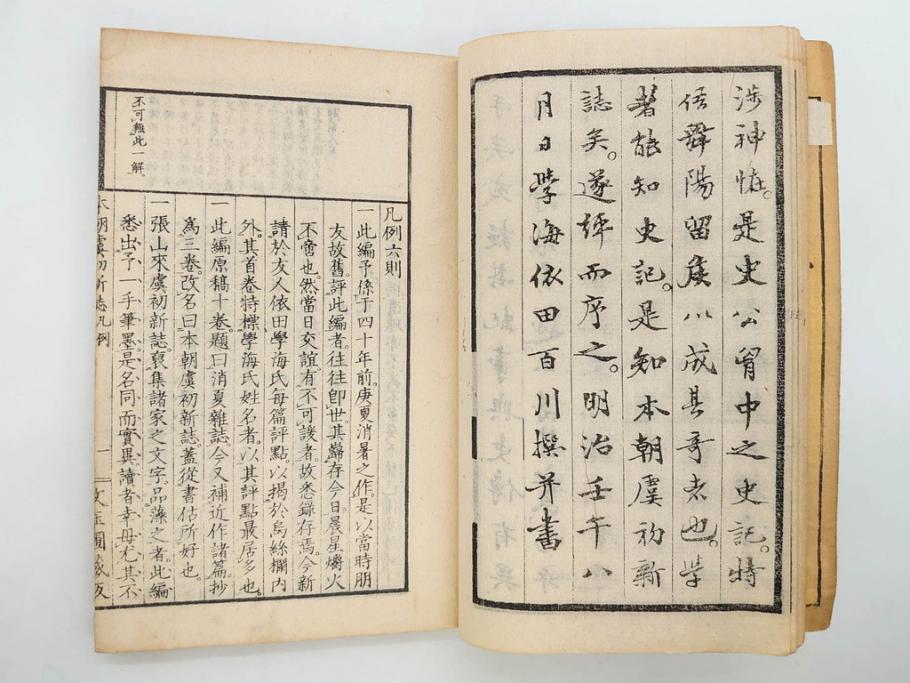 渉神怪。是史公胷中之史記。特
借舞陽留矦以成其奇者也。学
者能知史記。是知本朝虞初新
誌矣。遂評而序之。明治壬午八
月日學海依田百川撰并書
不可無此一解。
凡例六則
一此編予係于四十年前。庚夏消暑之作。是以當時朋
友故舊。評此編者。往往卽世。其巋存今日。晨星爝火
不啻也。然當日交誼。有不可諼者。故悉錄存焉。今新
請於友人依田學海氏每篇評點以揭於烏絲欄內
外。其首卷特標學海氏姓名者。以其評點最居多也。
一此編原稿十卷。題曰消夏雜誌。今又補近作諸篇。抄
爲三卷。改名曰本朝虞初新誌。蓋從書估所好也。
一張山來虞初新誌。裒集諸家之文字。品藻之者。此編
悉出予一手筆墨。是名同而實異。讀者幸毋尤其不
本朝虞初新誌凡例 一 文玉圃藏版